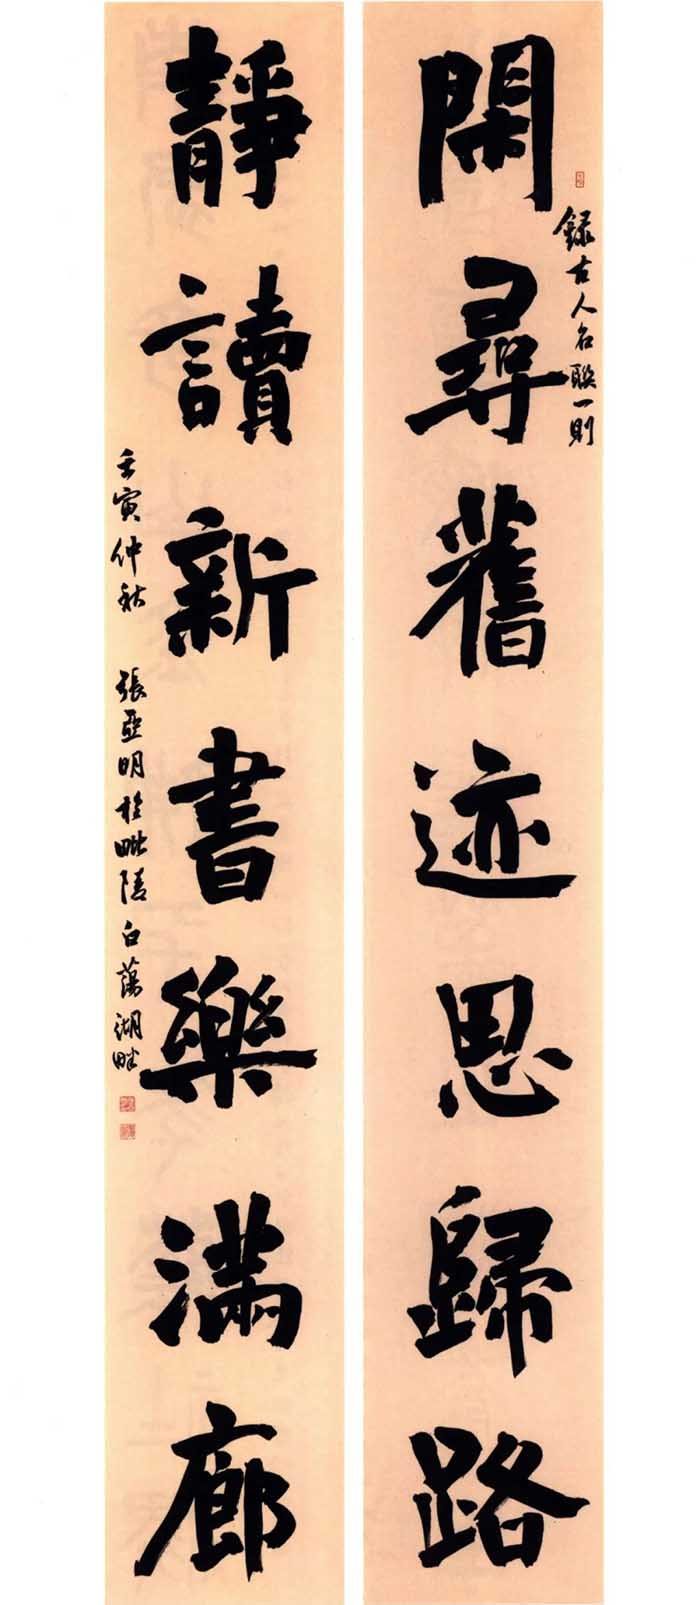 閑尋舊迹思歸路
錄古人名聯一則
靜讀新書樂滿廊
壬寅仲秋 張亞明於毗陵白蕩湖畔